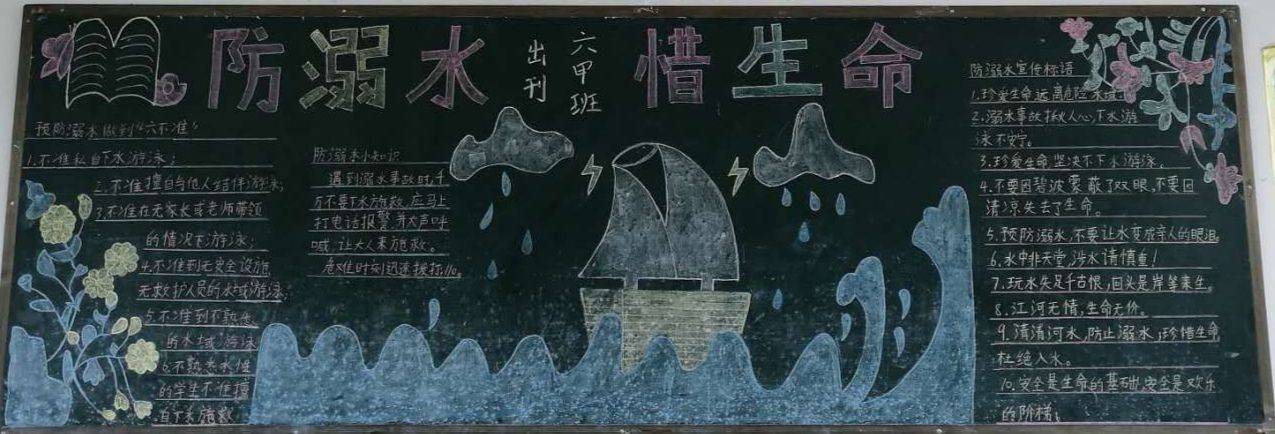 防溺水 惜生命
六甲班
出刊
预防溺水做到“六不准”
1.不准私自下水游泳；
2.不准擅自与他人结伴游泳；
3.不准在无家长或老师带领
的情况下游泳；
4.不准到无安全设施、
无救护人员的水域游泳；
5.不准到不熟悉
的水域游泳
6.不熟悉水性
的学生不准擅
自下水施救
防溺水小知识
遇到溺水事故时，千
万不要下水施救，应马上
打电话报警，并大声呼
喊，让大人来施救。
危难时刻迅速拨打110。
防溺水宣传标语
1.珍爱生命远离危险水域
2.溺水事故揪人心，下水游
泳不安宁。
3.珍爱生命坚决不下水游泳。
4.不要因碧波蒙蔽了双眼，不要因
清凉失去了生命。
5.预防溺水，不要让水变成亲人的眼泪。
6.水中非天堂，涉水请慎重！
7.玩水失足千古恨，回头是岸等来生。
8.江河无情，生命无价。
9.清清河水，防止溺水，珍惜生命
杜绝入水。
10.安全是生命的基础，安全是欢乐
的阶梯。